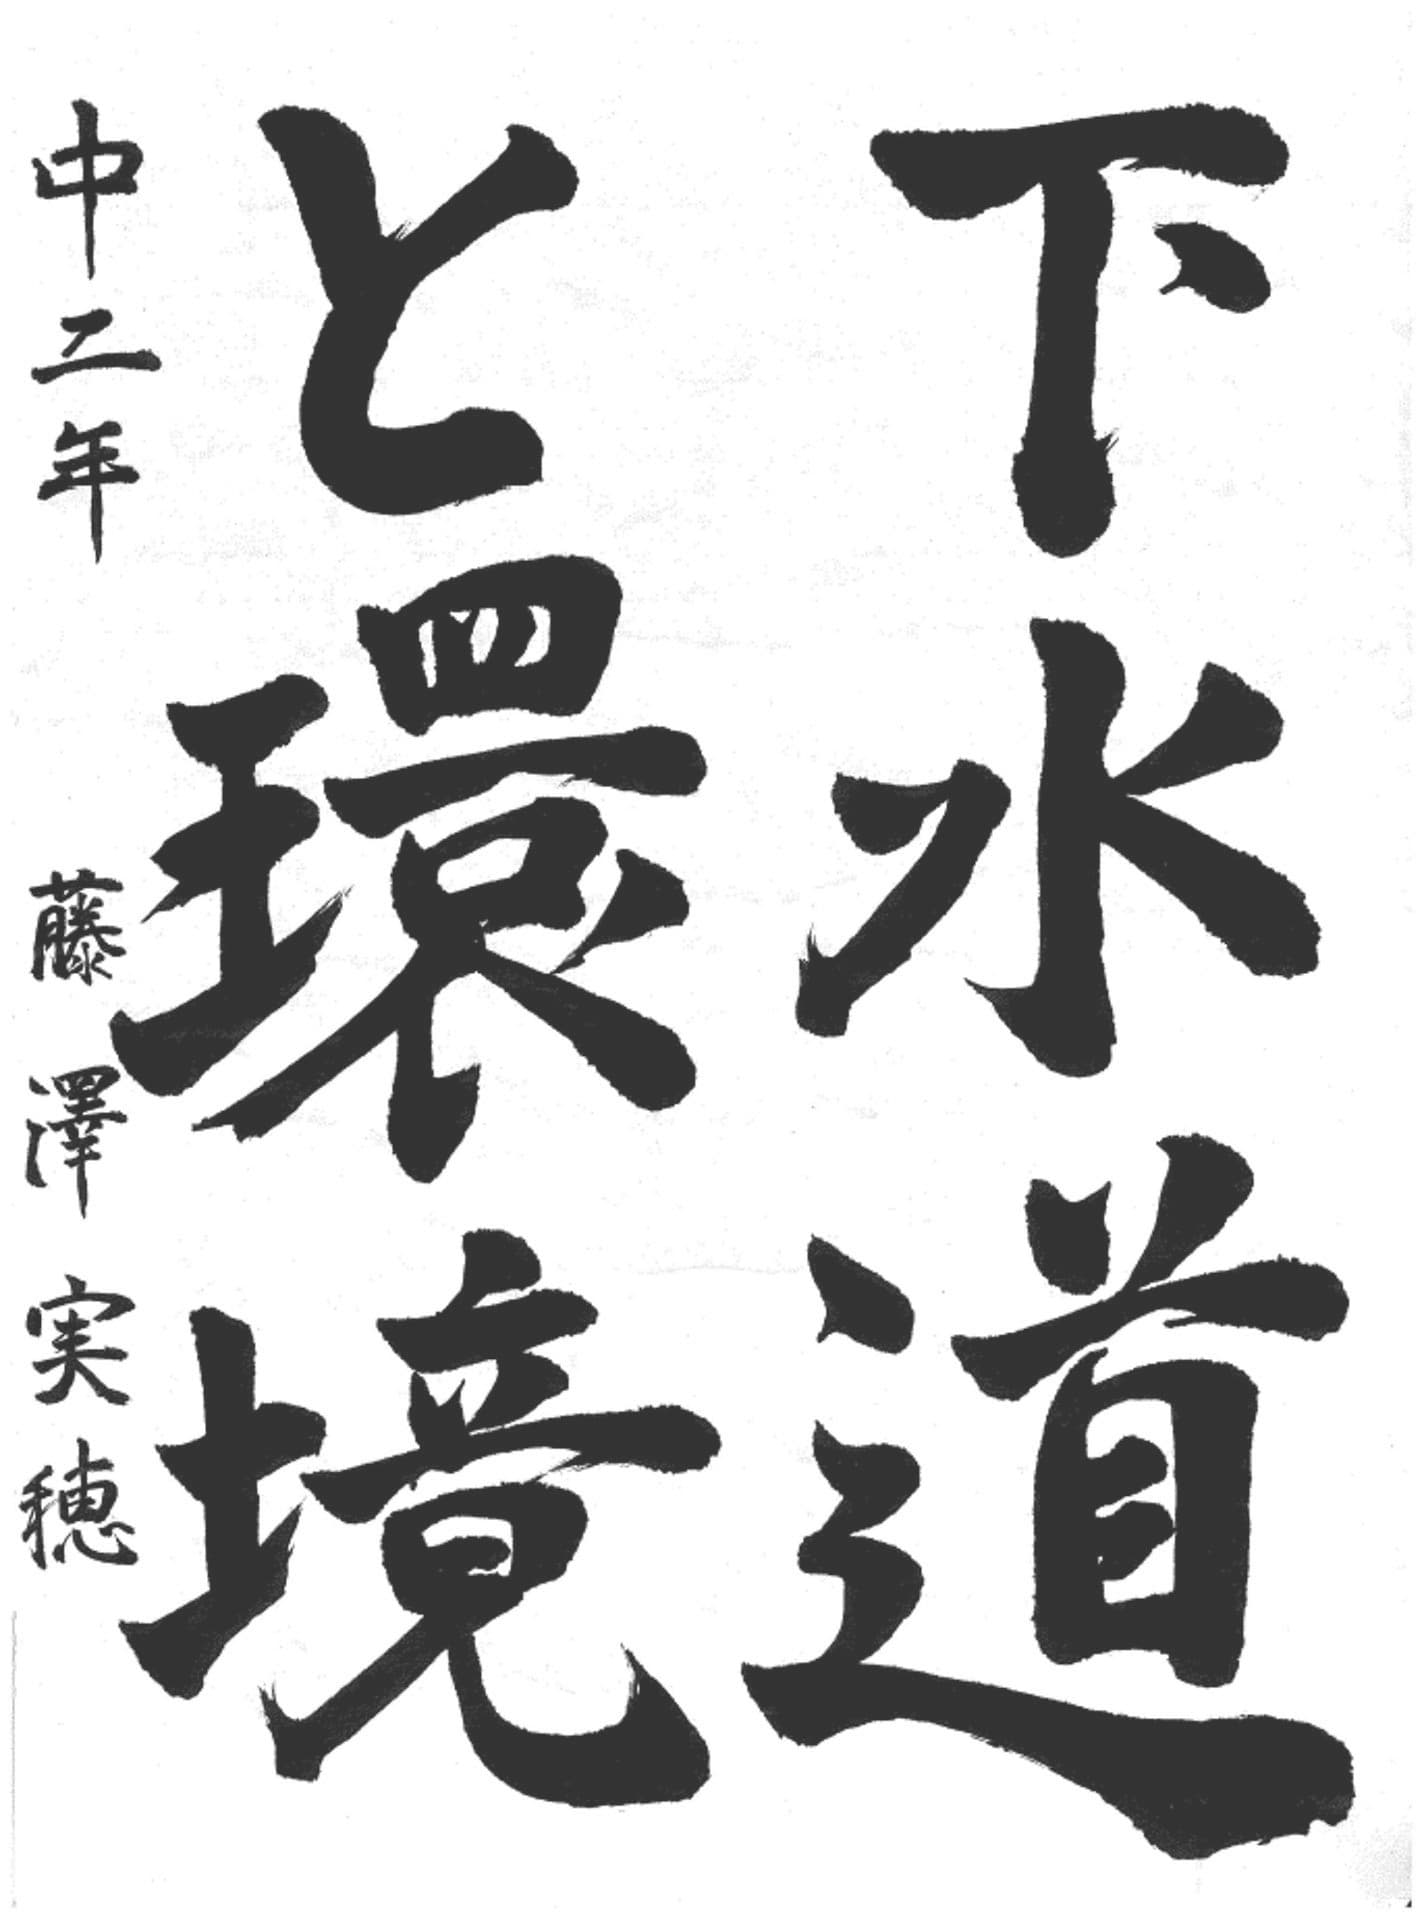 下水道
と環境
中二年 藤澤実穂